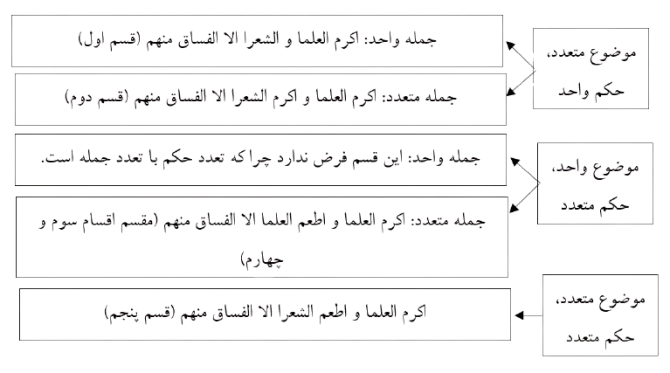 موضوع متعدد،
حکم واحد
جمله واحد: اکرم العلما و الشعرا الا الفساق منهم (قسم اول)
جمله متعدد: اکرم العلما و اکرم الشعرا الا الفساق منهم (قسم دوم)
موضوع واحد،
حکم متعدد
جمله واحد: این قسم فرض ندارد چرا که تعدد حکم با تعدد جمله است.
جمله متعدد: اکرم العلما و اطعم العلما الا الفساق منهم (مقسم اقسام سوم و
چهارم)
موضوع متعدد،
حکم متعدد
اکرم العلما و اطعم الشعرا الا الفساق منهم (قسم پنجم)